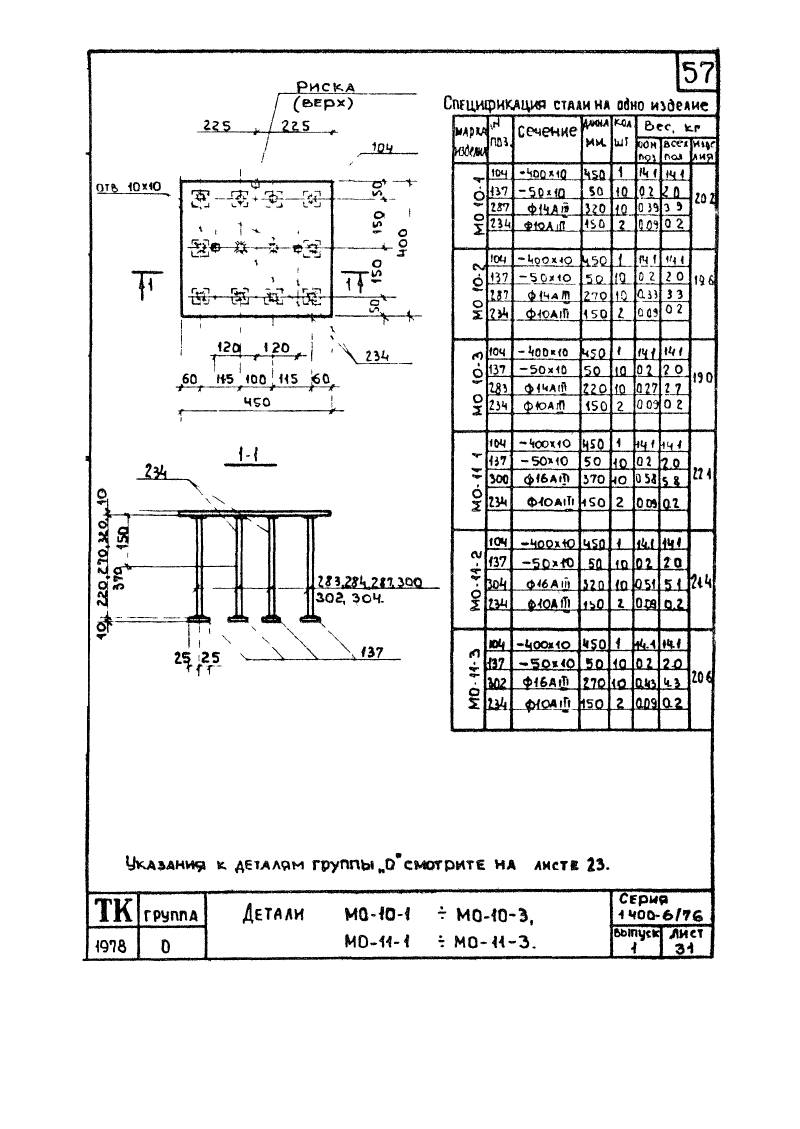 57
РИСКА
(ВЕРХ)
225 225
104
ОТВ 10×10
50
150
150
50
400
1 1
120 120
234
60 115 100 115 60
450
1-1
234
10
220,270,320,
370
150
10
283,284,287,300
302, 304.
25 25
137
СПЕЦИФИКАЦИЯ СТАЛИ НА ОДНО ИЗДЕЛИЕ
МАРКА ИЗДЕЛИЯ N ПОЗ. СЕЧЕНИЕ ДЛИНА ММ. КОЛ ШТ ВЕС, КГ
ОДН ПОЗ ВСЕХ ПОЗ ИЗДЕЛИЯ
МО 10-1 20.2
104 -400×10 450 1 14.1 14.1
137 -50×10 50 10 0.2 2.0
287 Ф14АIII 320 10 0.39 3.9
234 Ф10АIII 150 2 0.09 0.2
МО 10-2 19.6
104 -400×10 450 1 14.1 14.1
137 -50×10 50 10 0.2 2.0
287 Ф14АIII 270 10 0.33 3.3
234 Ф10АIII 150 2 0.09 0.2
МО 10-3 19.0
104 -400×10 450 1 14.1 14.1
137 -50×10 50 10 0.2 2.0
283 Ф14АIII 220 10 0.27 2.7
234 Ф10АIII 150 2 0.09 0.2
МО-11-1 22.1
104 -400×10 450 1 14.1 14.1
137 -50×10 50 10 0.2 2.0
300 Ф16АIII 370 10 0.58 5.8
234 Ф10АIII 150 2 0.09 0.2
МО-11-2 21.4
104 -400×10 450 1 14.1 14.1
137 -50×10 50 10 0.2 2.0
304 Ф16АIII 320 10 0.51 5.1
234 Ф10АIII 150 2 0.09 0.2
МО-11-3 20.6
104 -400×10 450 1 14.1 14.1
137 -50×10 50 10 0.2 2.0
302 Ф16АIII 270 10 0.43 4.3
234 Ф10АIII 150 2 0.09 0.2
УКАЗАНИЯ К ДЕТАЛЯМ ГРУППЫ „О" СМОТРИТЕ НА ЛИСТЕ 23.
ТК ГРУППА ДЕТАЛИ МО-10-1 ÷ МО-10-3,
МО-11-1 ÷ МО-11-3.
1978 О
СЕРИЯ
1400-6/76
ВЫПУСК
1
ЛИСТ
31